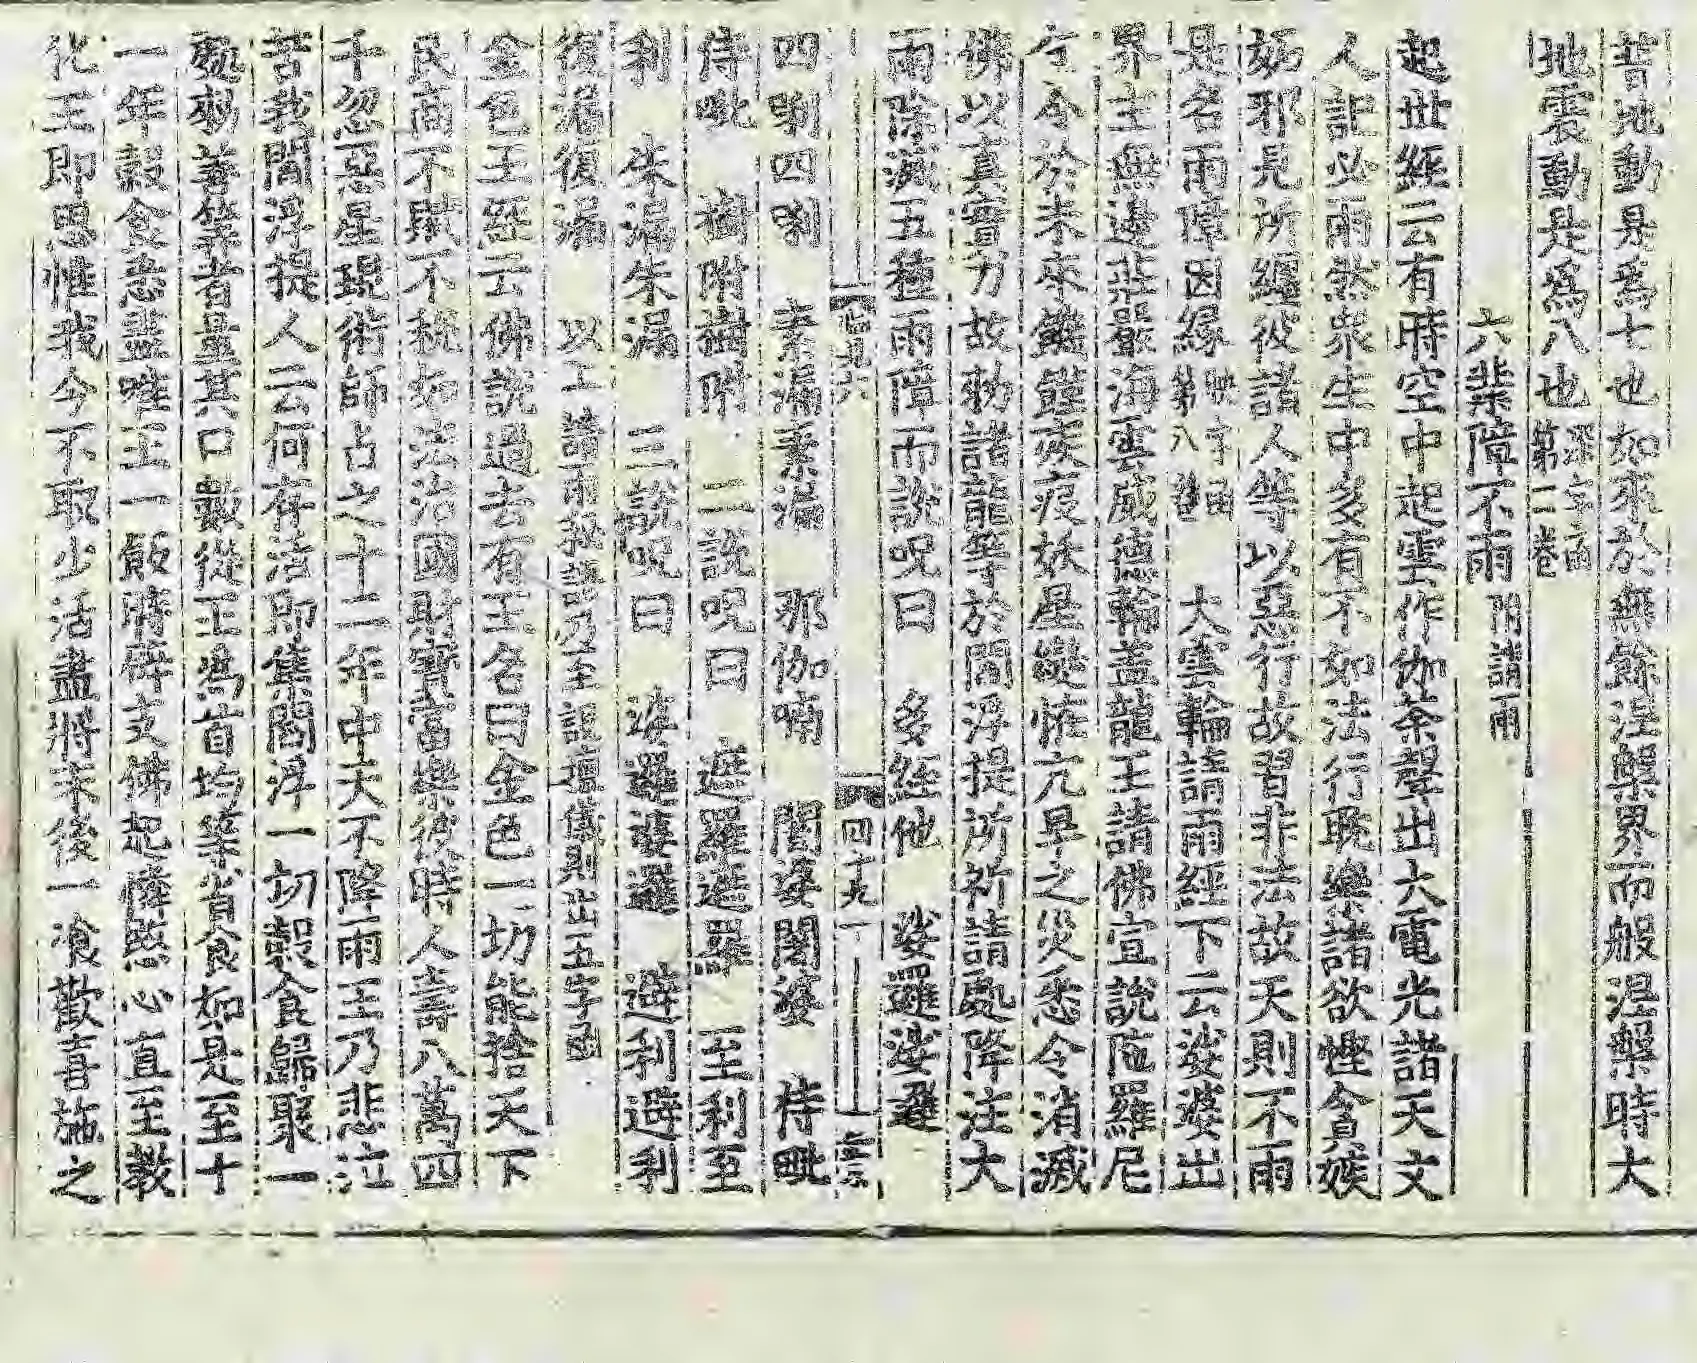 普地動是為七也如來於無餘涅槃界而般涅槃時大
地震動是為八也 第二卷
六業障不雨 附請雨
起世經云有時空中起雲作伽茶聲出大電光諸天文
人記必雨然衆生中多有不如法行耽樂諸欲慳貪嫉
妬邪見所纏彼諸人等以惡行故習非法故天則不雨
是名雨障因緣 第八 大雲輪請雨經下云娑婆出
界主無邊莊嚴海雲威德輪蓋龍王請佛宣說陁羅尼
句令於未來饑饉疾疫妖星變恠亢旱之災悉令消滅
佛以真實力故勑諸龍等於閻浮提所祈請處降注大
雨除滅五種雨障而說呪曰 多絰他 娑邏娑邏
四十九
四唎四唎 素漏素漏 那伽喃 闍婆闍婆 侍毗
侍毗 樹附樹附 二說呪曰 遮羅遮羅 至利至
利 朱漏朱漏 三說呪曰 婆邏婆邏 避利避利
復漏復漏 以上諸雨 乃至設壇儀則出王字函
金色王經云佛說過去有王名曰金色一切能捨天下
民商不賦不稅如法治國財寶富樂彼時人壽八萬四
千忽惡星現術師占之十二年中天不降雨王乃悲泣
苦哉閻浮提人云何存活即集閻浮一切穀食歸聚一
處劵善筭者量其口數從王為首均等省食如是至十
一年穀食悉盡唯王一飯時辟支佛起憐愍心直至教
化王即思惟我今不取少活盡將末後一飡歡喜施之